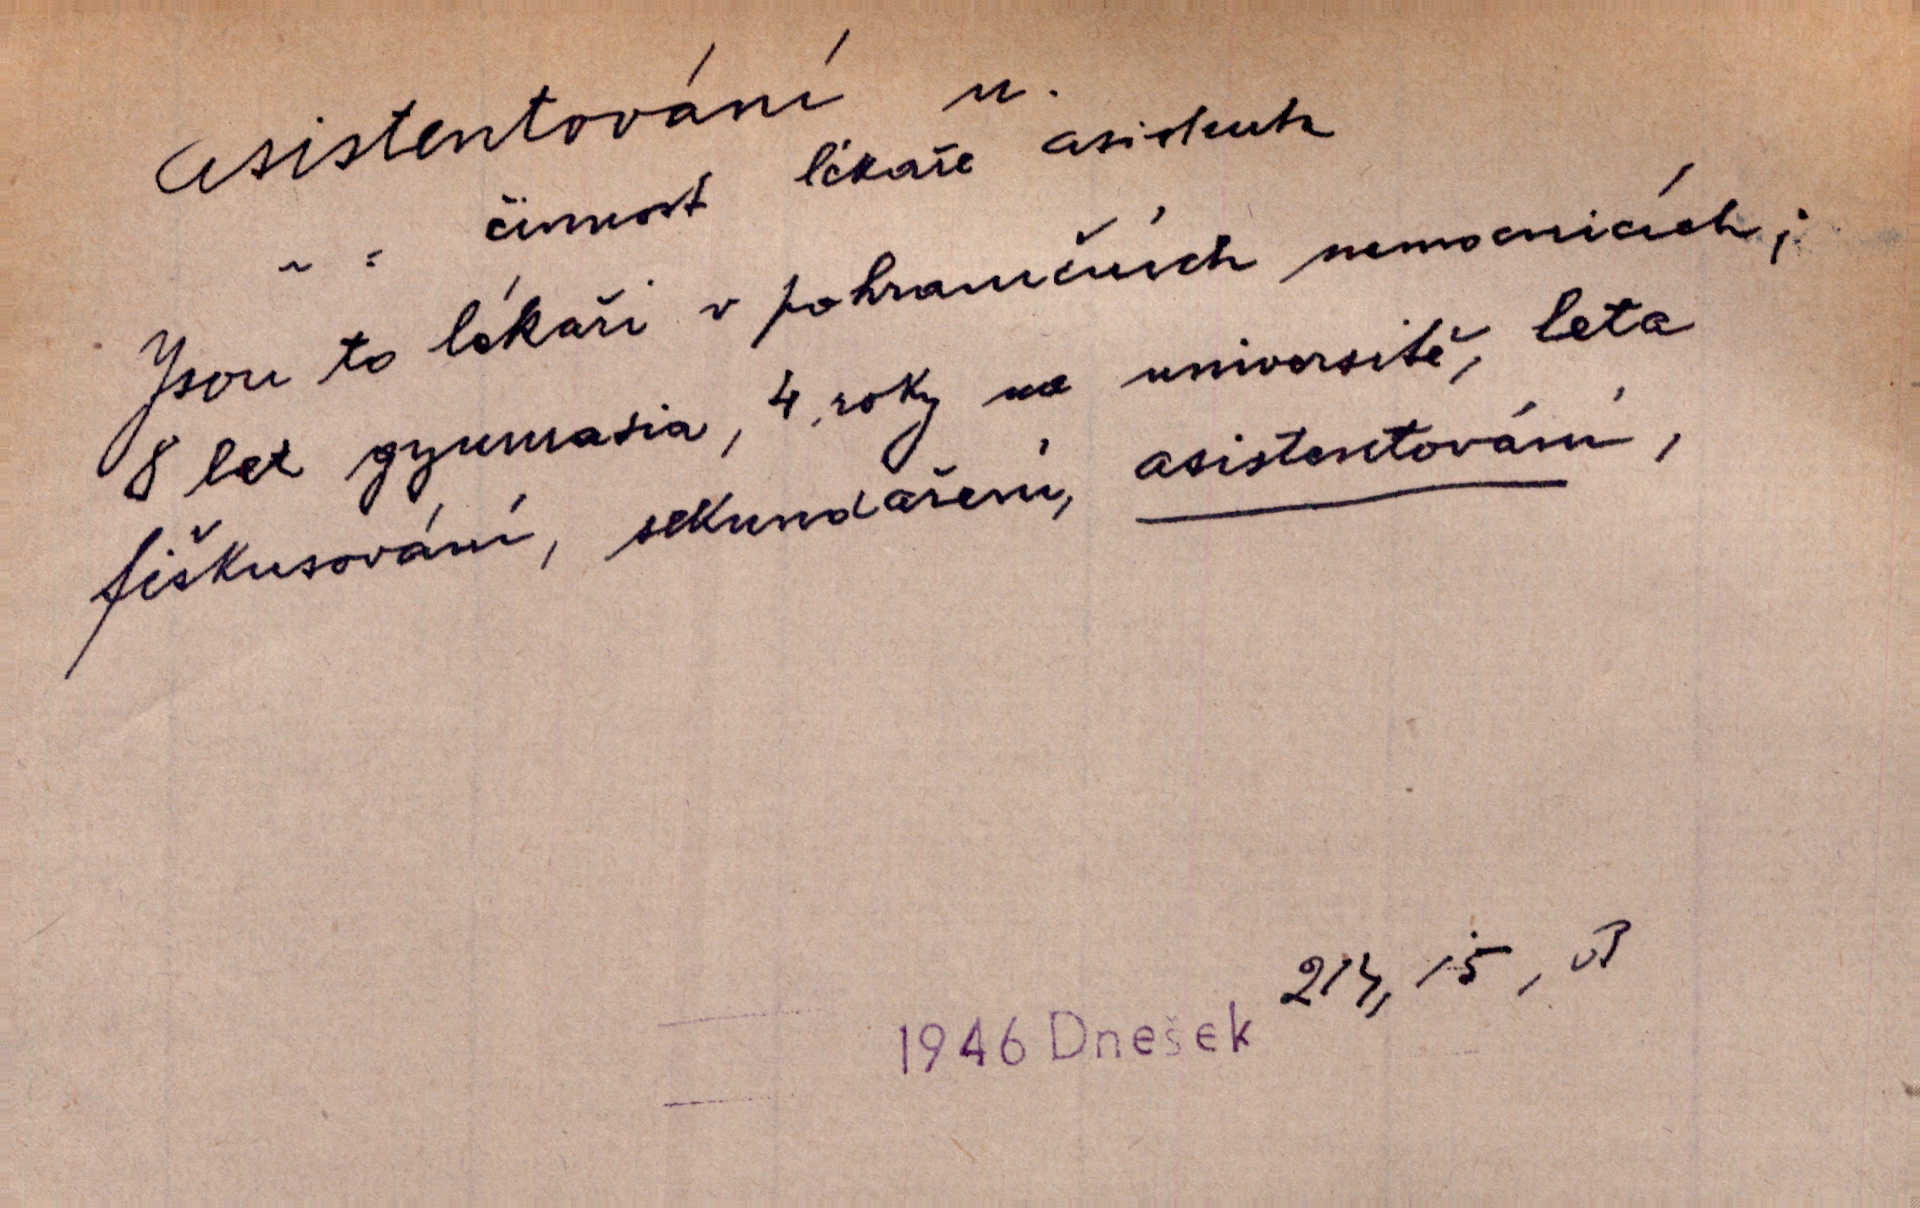 asistentování n.
~ : činnost lékaře asistenta
Jsou to lékaři v pohraničních nemocnicích;
8 let gymnasia, 4 roky na universitě, leta
fiškusování, sekundaření, asistentování,
214, 15,
1946 Dnešek